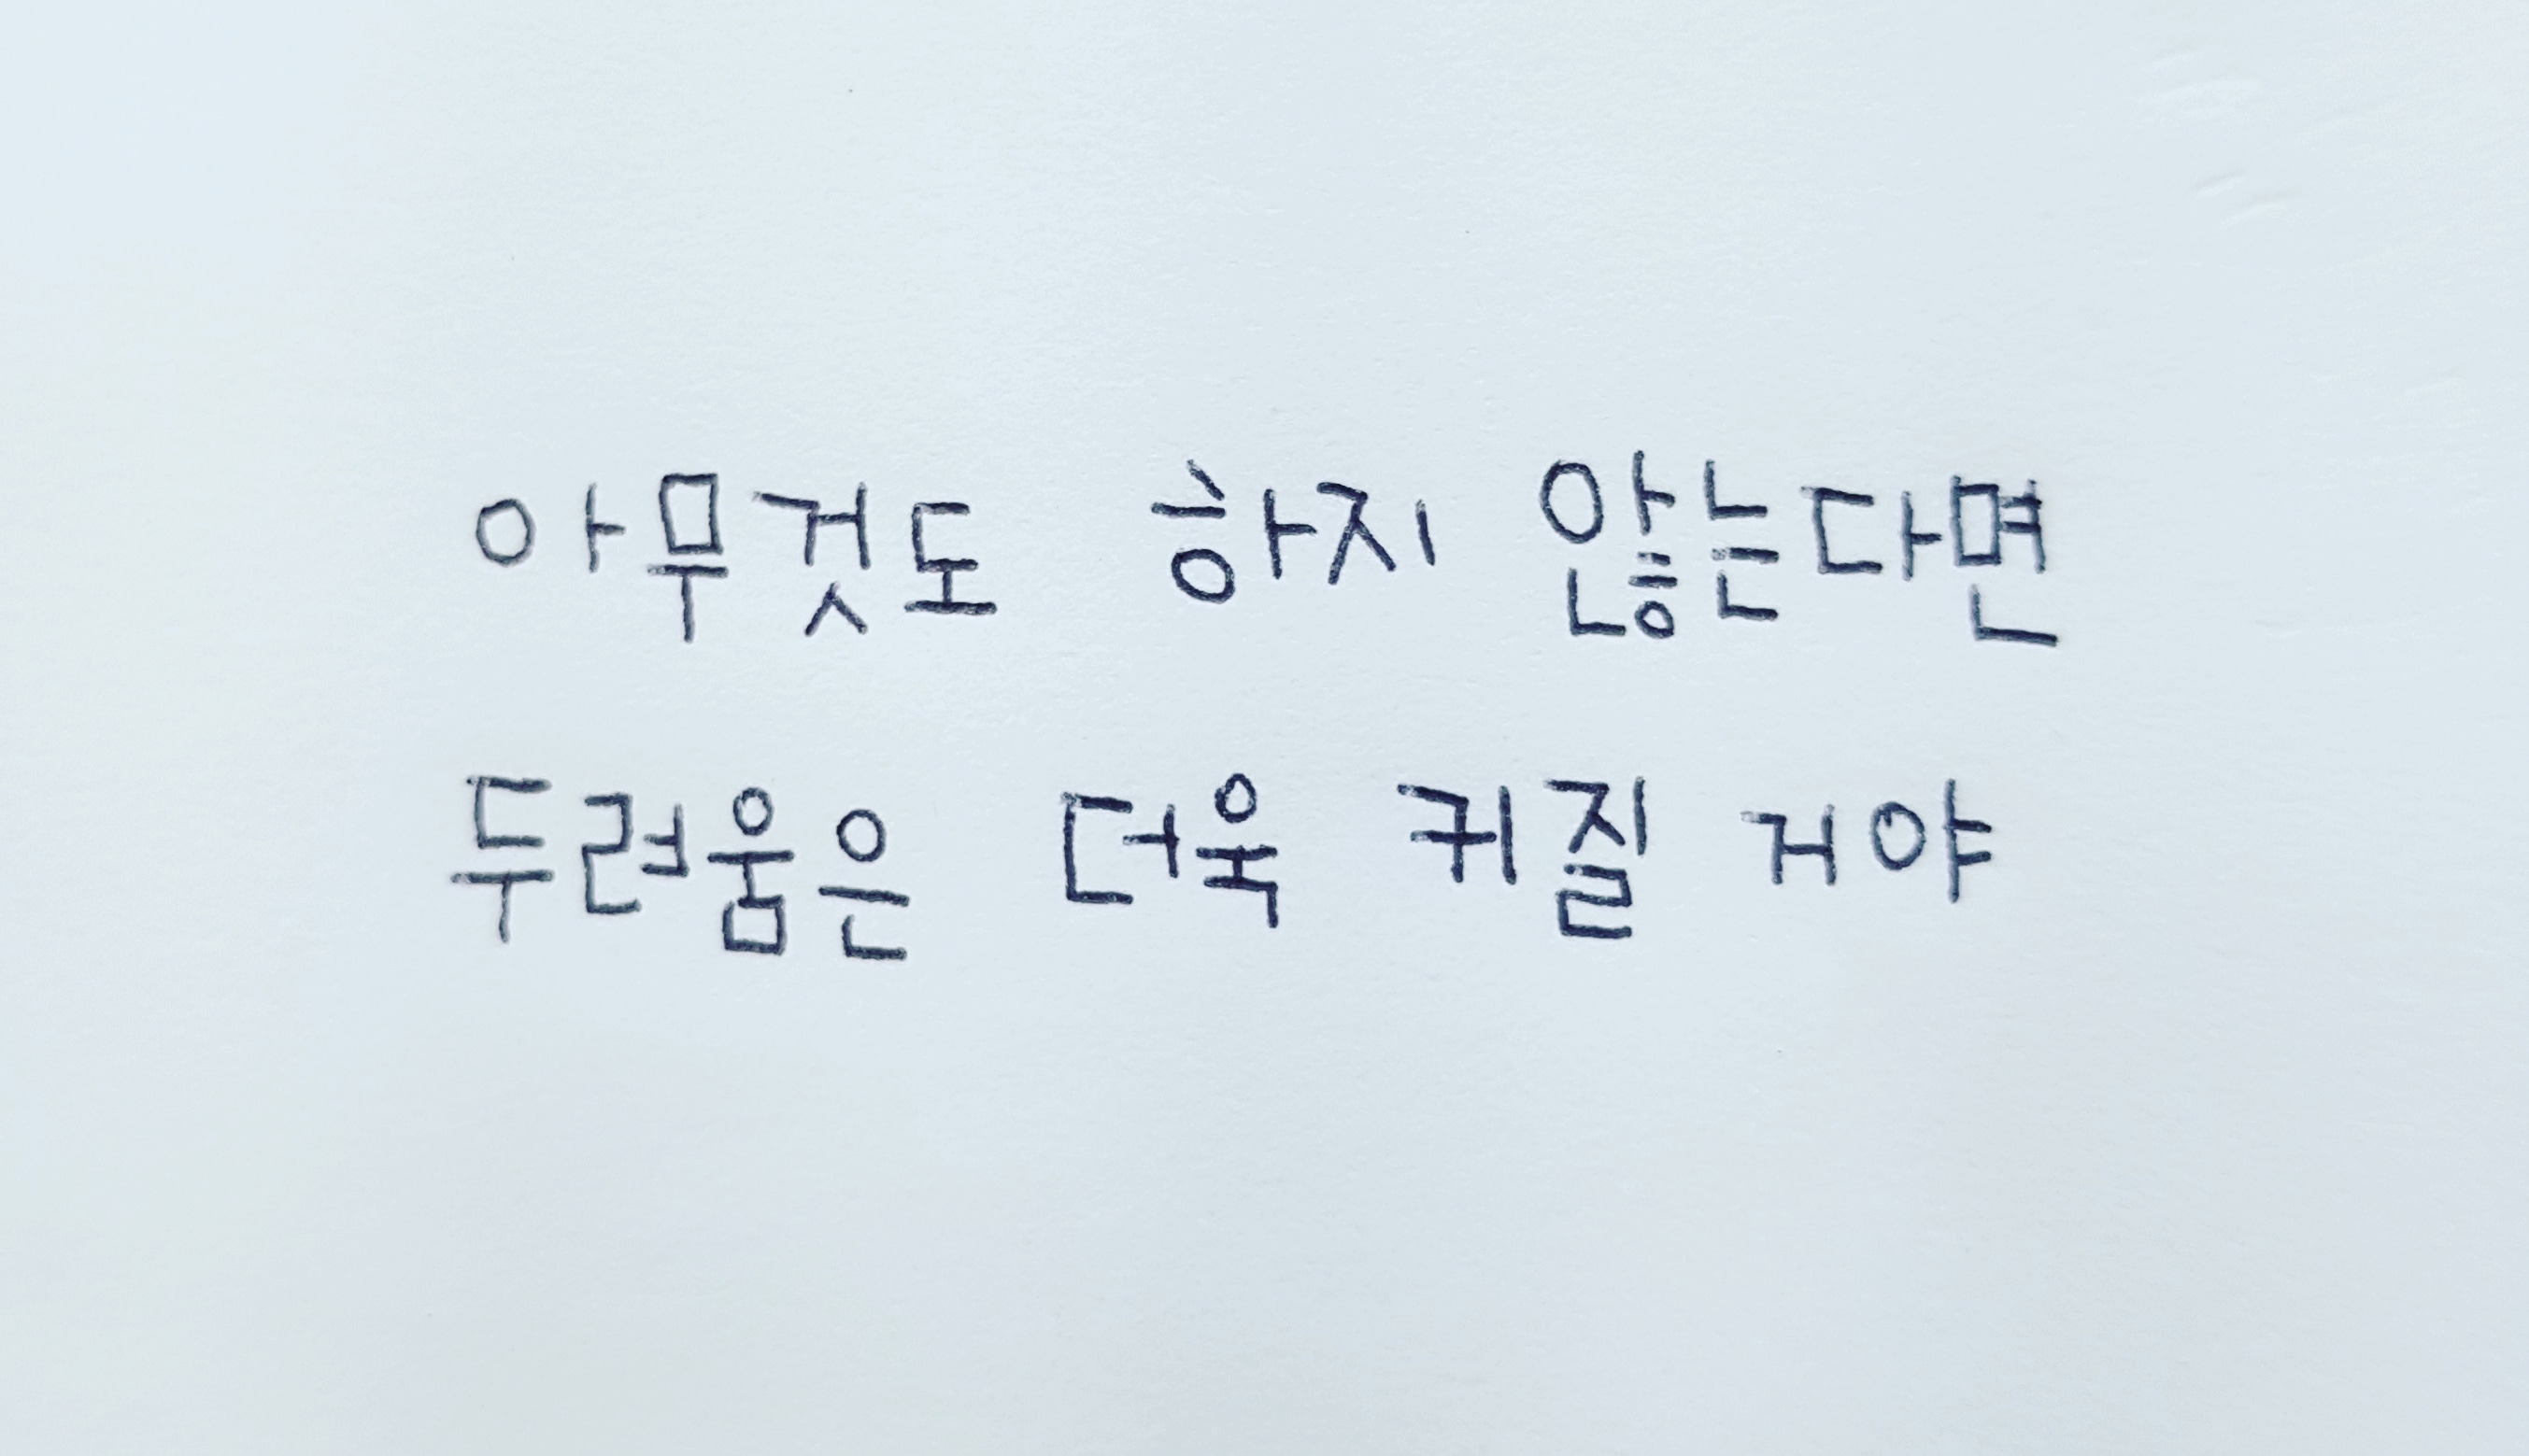 아무것도 하지 않는다면
두려움은 더욱 귀질 거야